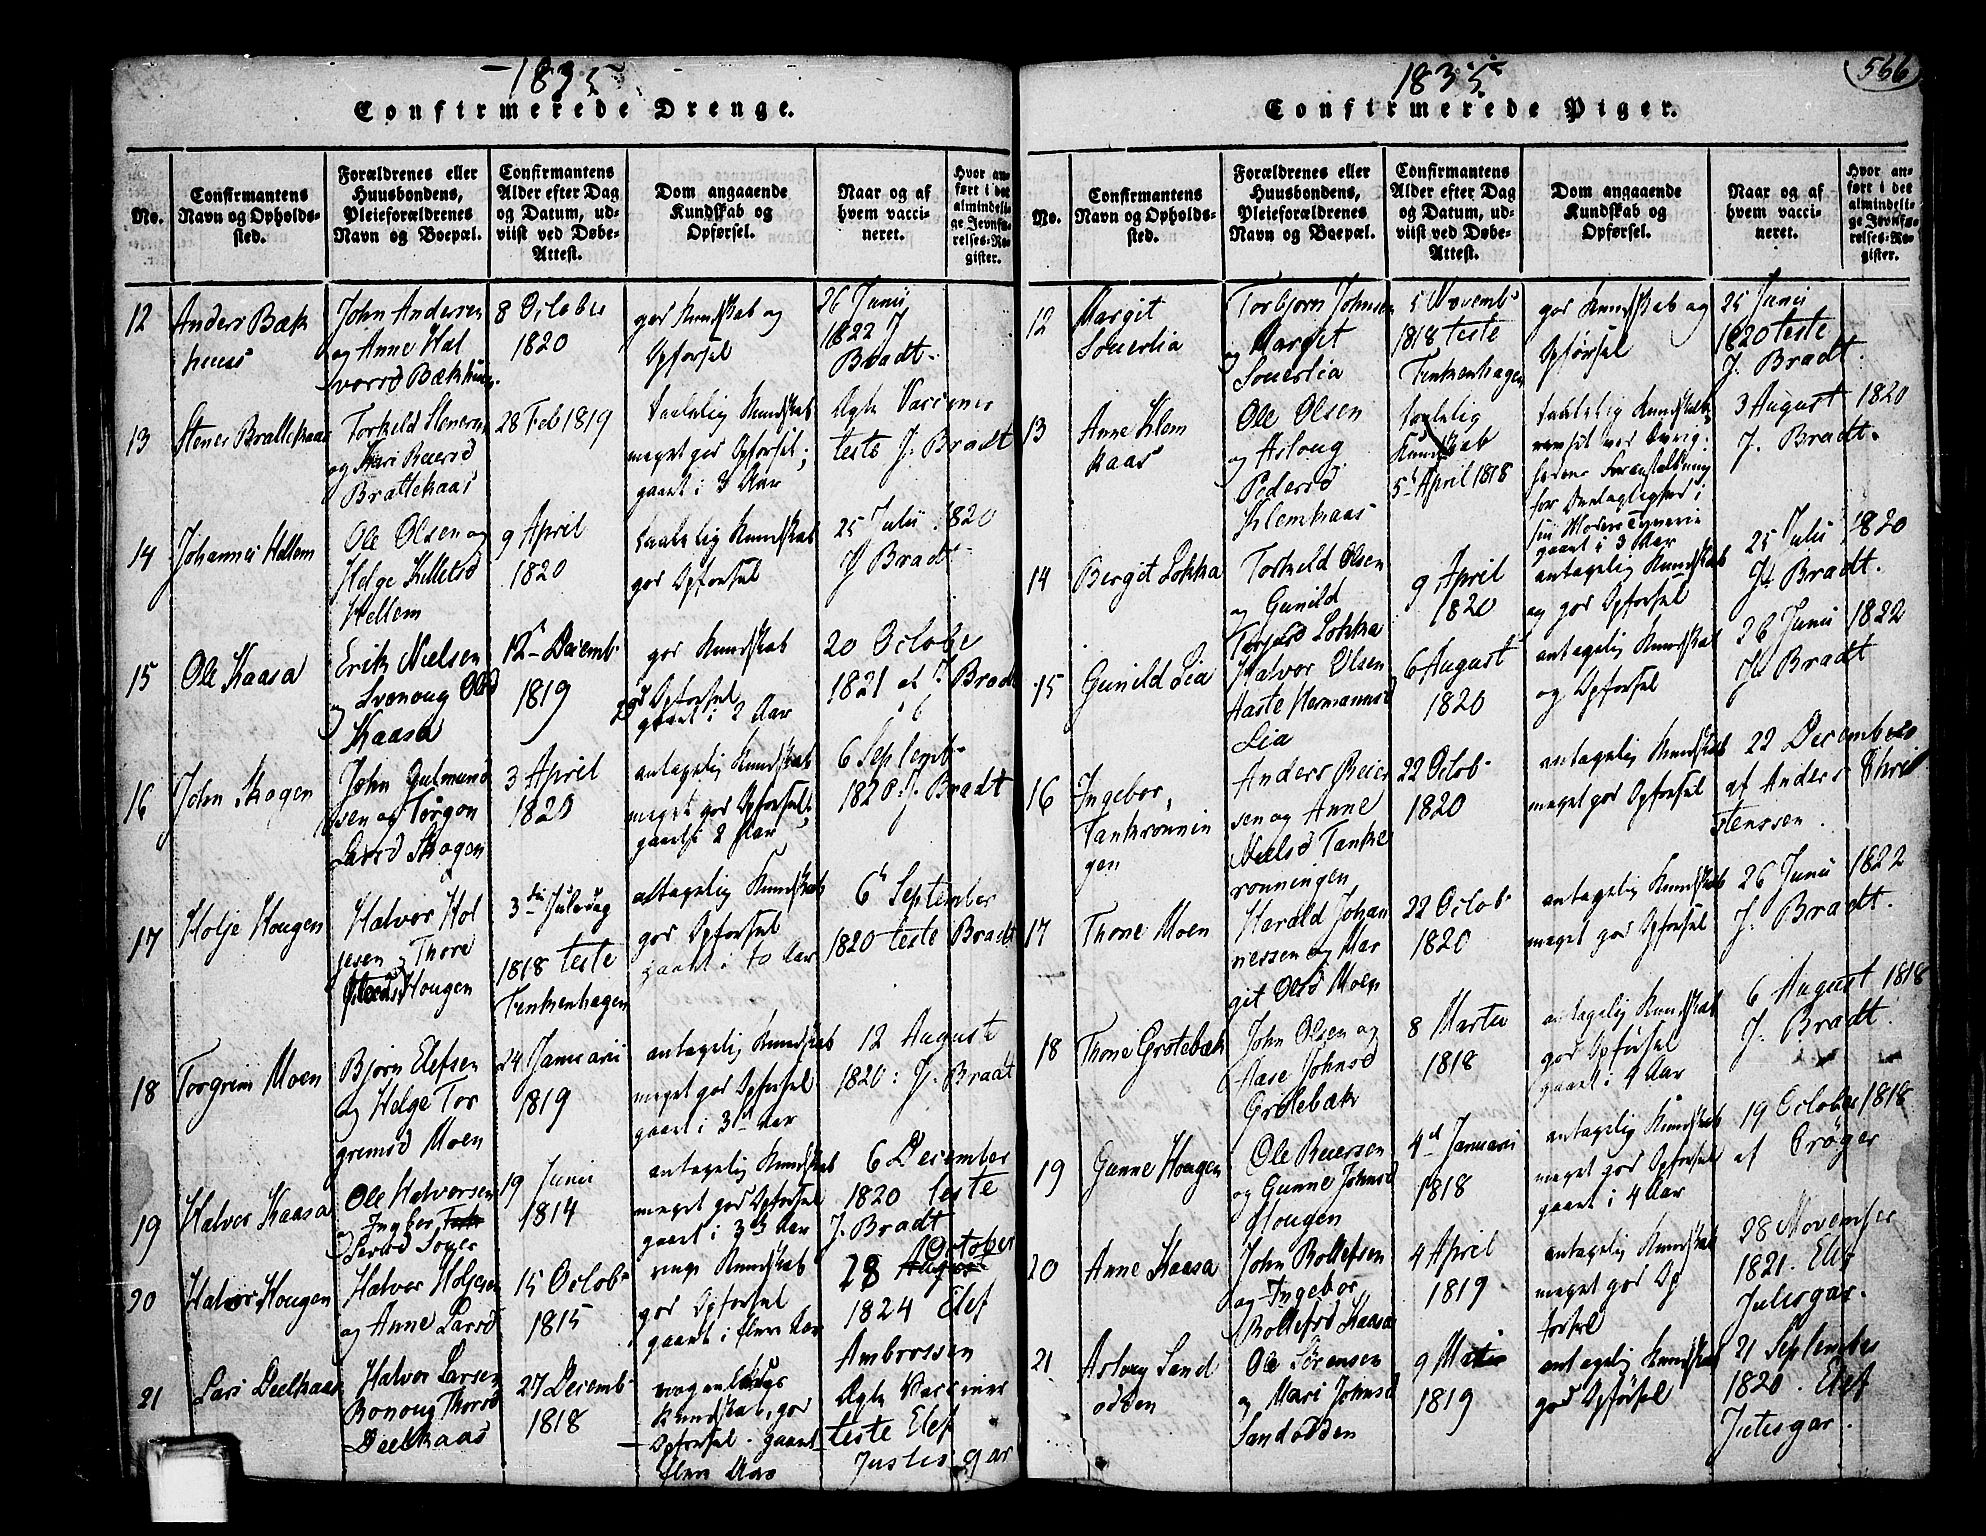 1835
Confirmerede Drenge.
No.
Confirmantens
Navn og Opholds-
sted.
Forældrenes eller
Huusbondens,
Pleieforældrenes
Navn og Boepæl.
Confirmantens
Alder efter Dag
og Datum, ud-
viist ved Døbe-
Attest.
Dom angaaende
Kundskab og
Opførsel.
Naar og af
hvem vacci-
neret.
Hvor an-
ført i det
almindeli-
ge Jevnfø-
relses-Re-
gister.
12
Anders Bæk
huus
John Andersen
og Anne Hal
vorsd Bækhuus
8 October
1820
god Kundskab og
Opforsel
26 Junii
1822 J
Bradt.
13
Stener Brattekaas
Torkeld Stenersen
og Kari Reiersd
Brattekaas
28 Feb 1819
taalelig Kundskab
meget god Opforsel;
gaaet i 3 Aar
Agte Vacciner
teste J. Bradt
14
Johannes Hellem
Ole Olsen og
Helge Kittelsd
Hellem
9 April
1820
taalelig Kundskab
god Opforsel
25 Julii 1820
J Bradt.
15
Ole Kaasa
Erik Nielsen
og Svonoug Olsd
Kaasa
12 Decemb.
1819
god Kundskab
og Opforsel
gaaet i 2 Aar
20 Octobe
1821 af J Bradt
16
John Skogen
John Gulmund
sen og Torgon
Larsd Skogen
3 April
1820
antagelig Kundskab
meget god Opforsel
gaaet 2 Aar
6 Septemb.
1820. J. Bradt
17
Holje Hougen
Halvor Hol
jesen, Thore
Hougen
3die Juledag
1818 teste
Tenkenhagen
antagelig Kundskab
god Opforsel
gaaet i to Aar
6 September
1820 teste Bradt
18
Torgrim Moen
Bjorn Elefsen
og Helge Tor
gremsd Moen
24 Januarii
1819
antagelig Kundskab
meget god Opforsel
gaaet i 3 Aar
12 August
1820: J. Bradt
19
Halvor Kaasa
Ole Halvorsen
Ingebor
19 Junii
1814
antagelig Kundskab
meget god Opforsel
gaaet i 3 Aar
6 December
1820 teste
J. Bradt
20
Halvor Hougen
Halvor Holjesen
og Anne Larsd
15 Octob.
1815
ringe Kundskab
god Opforsel
gaaet i flere Aar
October
28
1824 Elef
Ambrossen
21
Lars Deelkaas
Halvor Larsen
Ronoug Thorsd
Deelkaas
27 Decemb.
1818
Kundskab, god
Opforsel. gaaet
flere Aar
Agte Vacciner
teste Elef
Justisgar
1835
566
Confirmerede Piger.
No.
Confirmantens
Navn og Opholds-
sted.
Forældrenes eller
Huusbondens,
Pleieforældrenes
Navn og Boepæl.
Confirmantens
Alder efter Dag
og Datum, ud-
viist ved Døbe-
Attest.
Dom angaaende
Kundskab og
Opførsel.
Naar og af
hvem vacci-
neret.
Hvor an-
ført i det
almindeli-
ge Jevnfø-
relses-Re-
gister.
12
Margit
Souerlia
Torbjorn Johnsen
og Margit
Souerlia
5 Novemb.
1818 teste
Tenkenhagen
god Kundskab og
Opførsel
25 Junii
1820 teste
J. Bradt.
13
Anne Klem
kaas
Ole Olsen
og Asloug
Pedersd
Klemkaas
taalelig
Kundskab
5 April 1818
taalelig Kundskab
gaaet i 3 Aar
3 August 1820
J. Bradt.
14
Bergit Lokka
Torkeld Olsen
og Gunild
Lokka
9 April
1820
antagelig Kundskab
og god Opforsel
25 Julii 1820
J. Bradt.
15
Gunild Lia
Halvor Olsen
Aaste Hermannsd
Lia
6 August
1820
antagelig Kundskab
og Opforsel
26 Junii 1822
J. Bradt
16
Ingebor
Tankronnin
gen
Anders Reier
sen og Anne
Nielsd Tanke
ronningen
22 Octob.
1820
antagelig Kundskab
meget god Opforsel
22 December
af Anders Chri
stenssen.
17
Thone Moen
Harald Johan
nessen og Mar
git Olsd Moen
22 Octob.
1820
antagelig Kundskab
meget god Opforsel
26 Junii 1822
J. Bradt.
18
Thone Grotebæk
John Olsen og
Aase Johnsd
Grotebæk
8 Martii
1818
antagelig Kundskab
god Opforsel
gaaet i 4 Aar
6 August 1818
J. Bradt
19
Gunne Hougen
Ole Reiersen
og Gunne Johnsd
Hougen
4 Januarii
1818
antagelig Kundskab
meget god Opforsel
gaaet i 4 Aar
19 October 1818
af Crøger
20
Anne Kaasa
John Rollefsen
og Ingebor
Rollefsd Kaasa
4 April
1819
antagelig Kundskab
meget god Op
forsel
28 November
1821. Elef
Julisgar.
21
Asloug Sand
odden
Ole Sörensen
og Mari Johnsd
Sandodden
9 Martii
1819
antagelig Kundskab
god Opførsel
21 September
1820. Elef
Jutisgar.